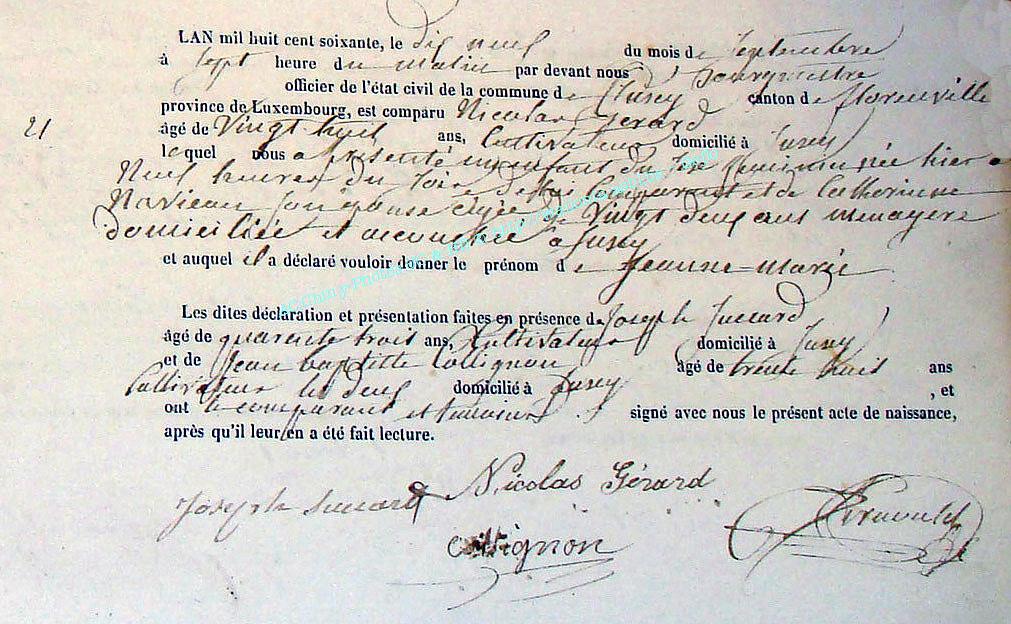 LAN mil huit cent soixante, le dix neuf du mois de Septembre
à Sept heure du matin par devant nous Bourgmestre
officier de l'état civil de la commune de canton de florenville
province de Luxembourg, est comparu Nicolas Gerard
21
âgé de Vingt huit ans, Cultivateur domicilié à
lequel nous a présenté un enfant du sexe feminin née hier a
Neuf heures du soire de lui Comparant et de Catherinne
son épouse agée de Vingt deux ans menagere
domiciliée et accouchée à
et auquel il a déclaré vouloir donner le prénom de Jeanne-marie
Les dites déclaration et présentation faites en présence de Joseph
âgé de quarente trois ans, Cultivateur domicilié à
et de Jean baptiste Collignon âgé de trente ans
Cultivateur les deux domicilié à , et
ont le comparant et temoins signé avec nous le présent acte de naissance,
après qu'il leur en a été fait lecture.
Nicolas Gérard
Joseph
Collignon